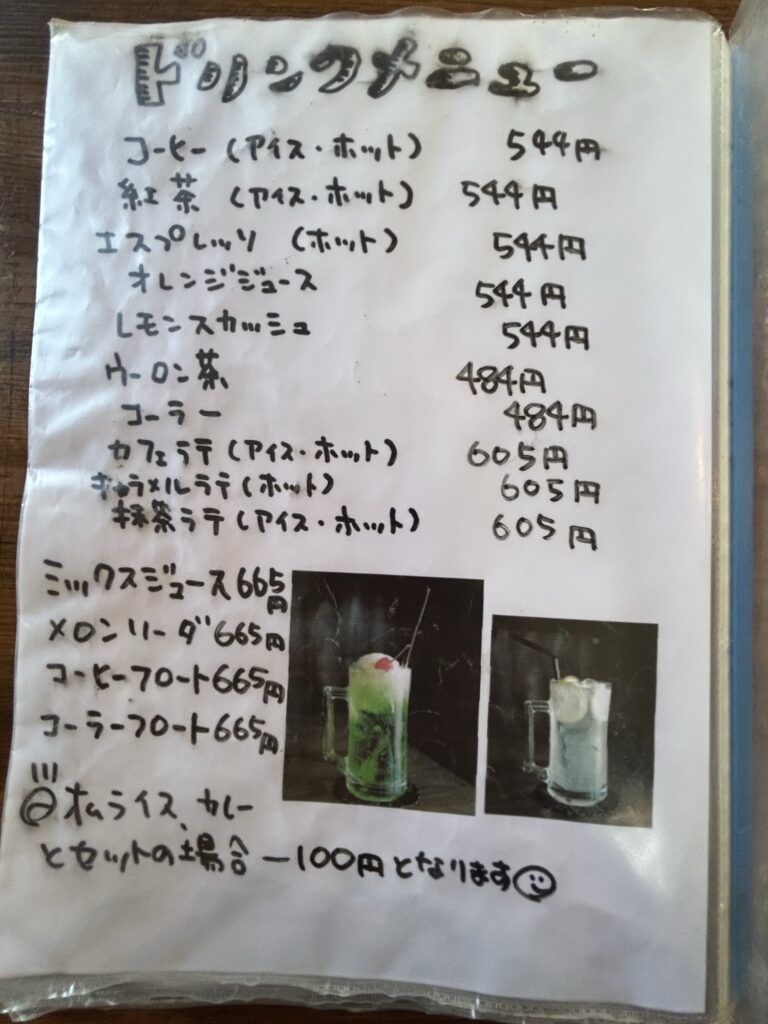 ドリンクメニュー
コーヒー (アイス・ホット) 544円
紅茶 (アイス・ホット) 544円
エスプレッソ (ホット) 544円
オレンジジュース 544円
レモンスカッシュ 544円
ウーロン茶 484円
コーラー 484円
カフェラテ (アイス・ホット) 605円
キャラメルラテ (ホット) 605円
抹茶ラテ (アイス・ホット) 605円
ミックスジュース 665円
メロンソーダ 665円
コーヒーフロート 665円
コーラーフロート 665円
オムライス、カレー
とセットの場合 -100円となります